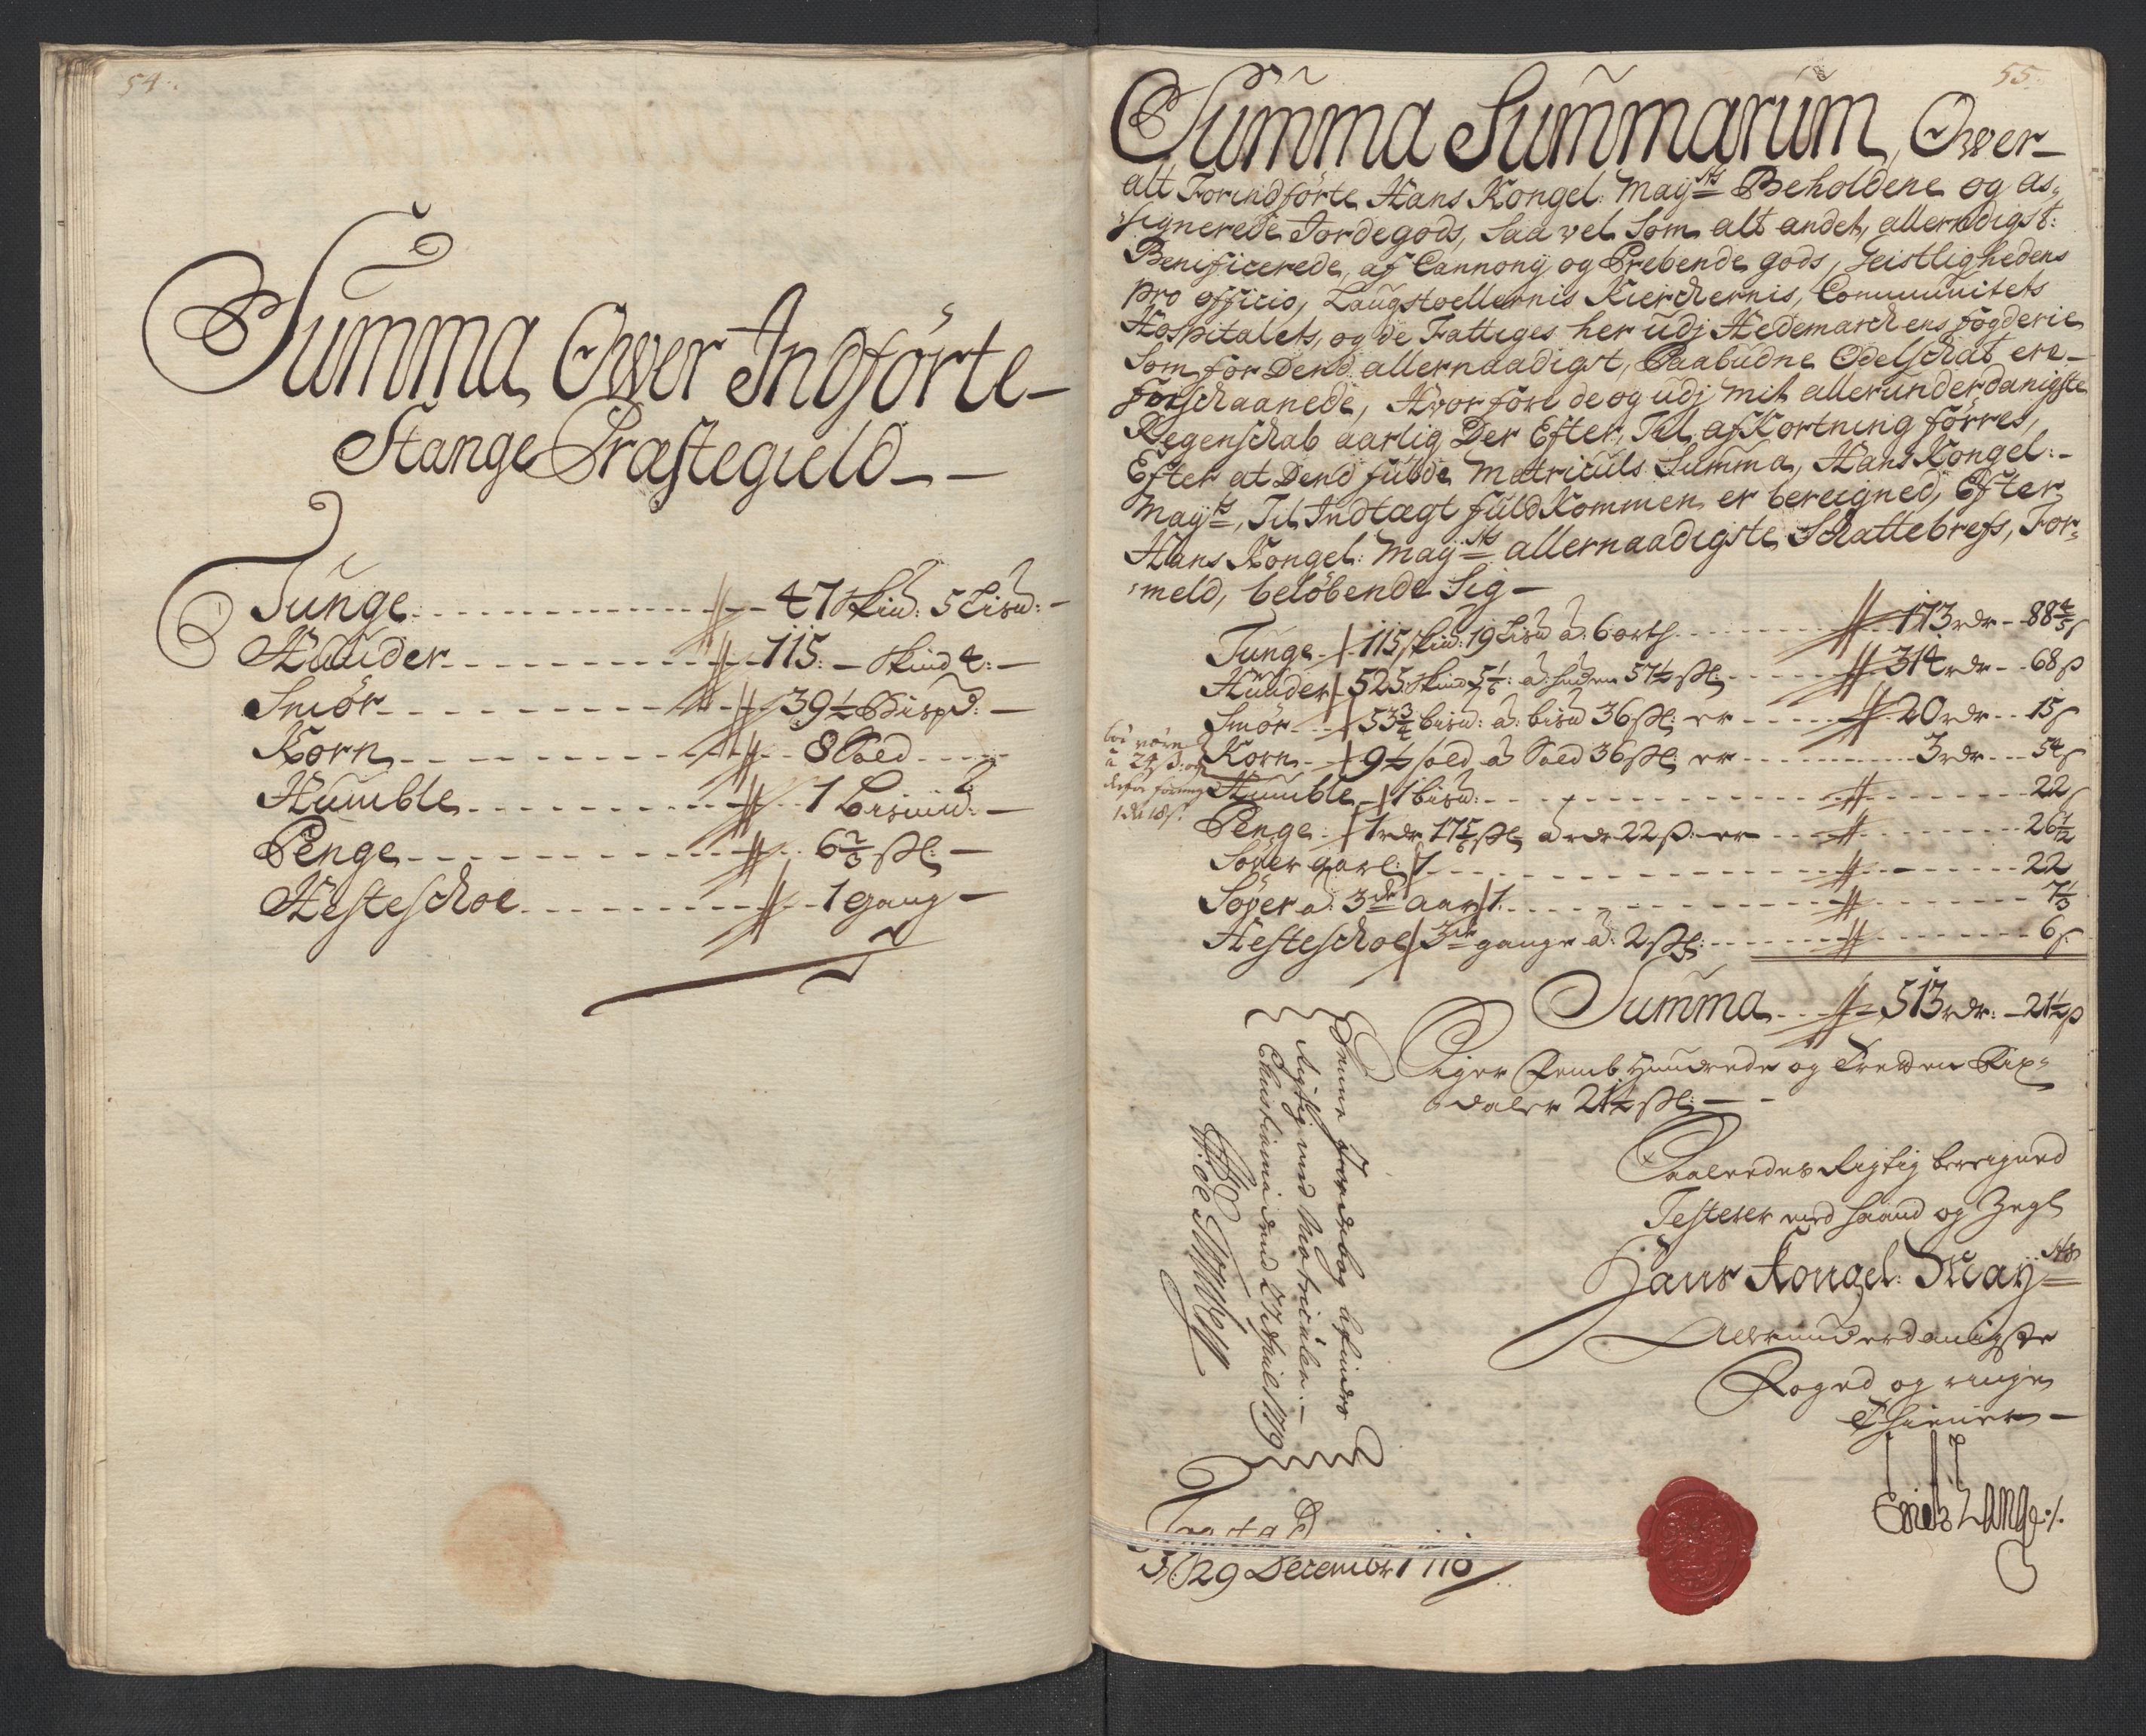 54.
Summa Ower Indförte
Stange Præstegield
Tunge 47 Skin: 5 Lisn:
Hüuder 115. Skind 4:
Smör 39½ Bispd:
Korn 8 Sold
Humble 1 Bismd:
Penge 6⅔ ßl:
Hesteschoe 1 gang
55.
Summa Summarum, Ower
alt Forindförte Hans Kongel: Maÿts Beholdene og as
signerede Jordegods, Saa vel Som alt andet, allernädigst:
Benificerede, af Cannonÿ og Prebende gods, Geistlighedens
pro officio, Laugstoellernis Kierchernis, Communitets
Hospitalets, og de Fattiges her udj Hedemarchens fogderie
Som for Dend allernaadigst, Paabudne Odelschat ere
forschaanede, Hvor före de og udj mit allerunderdanigste
Regenschab aarlig Der Efter, Til afkortning förres,
Efter at Dend fulde Matriculs Summa, Hans Kongel:
Maÿts, Til Indtægt fuldkommen er bereigned, Efter
Hans Kongel: Maÿts allernaadigste Schattebrefs, For
meld, belöbende Sig
Tunge 115 skin: 19 Lisd a 6 orth 173 rdr 88⅘ s
Hüuder 525 Skind 5⅙: a huden 57½ ßl: 314 rdr 68 ß
Smör 53¾ bisd: a: bisd 36 ßl: er 20 rdr 15 s
Korn 9½ sold a Sold 36 ßl: er 3 rdr 54 s
Humble 1 bisd: 22 s
Penge 1 rdr 17⅚ ßl a rdr 22 ß: er 26½
Söper aarl: 1 22
Söper a: 3de aar 1. 7⅓
Hesteschoe 3de gange a: 2 ßl: 6 s
Summa 513 rdr: 21½ ß
Siger Femb Hundrede og Tretten Rix
daler 21½ ßl:
Saaledes Rigtig bereigned
Testerer med haand og Zegl
Hans Kongel: Maÿts
Allerunderdanigste
Foged og ringe
Thiener
Erich Lange
Denne Jordebog befindes
Rigtig med Matriculen.
Christiania dend 1719
29 Decembr 1718